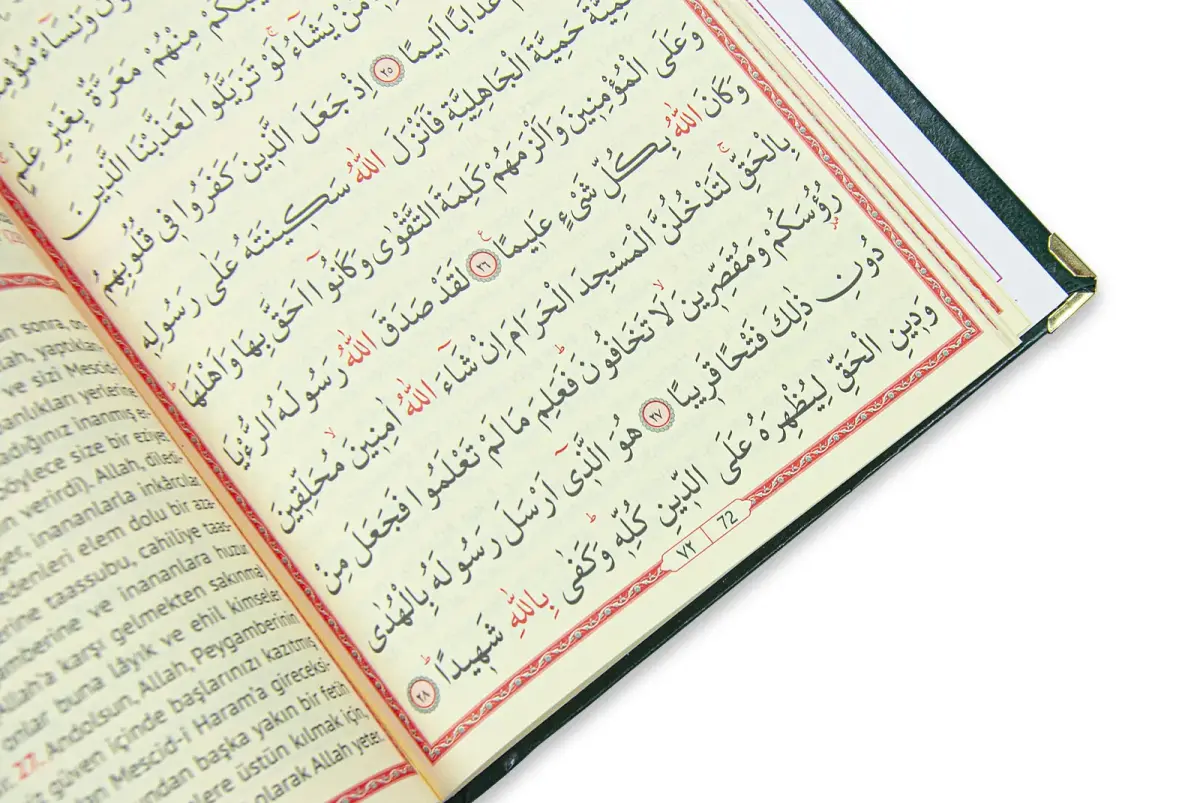 وَنِسَٓاءٌ
مِنْهُمْ مَعَرَّةٌ بِغَيْرِ عِلْمٍ
مَنْ يَشَٓاءُ لَوْ تَزَيَّلُوا لَعَذَّبْنَا الَّذِينَ
عَذَابًا اَلِيمًا ٢٥ اِذْ جَعَلَ الَّذِينَ كَفَرُوا فِى قُلُوبِهِمُ
حَمِيَّةَ الْجَاهِلِيَّةِ فَاَنْزَلَ اللّٰهُ سَكِينَتَهُ عَلٰى رَسُولِهِ
وَعَلَى الْمُؤْمِنِينَ وَاَلْزَمَهُمْ كَلِمَةَ التَّقْوٰى وَكَانُٓوا اَحَقَّ بِهَا وَاَهْلَهَا
وَكَانَ اللّٰهُ بِكُلِّ شَىْءٍ عَلِيمًا ٢٦ لَقَدْ صَدَقَ اللّٰهُ رَسُولَهُ الرُّءْيَا
بِالْحَقِّ لَتَدْخُلُنَّ الْمَسْجِدَ الْحَرَامَ اِنْ شَٓاءَ اللّٰهُ اٰمِنِينَ مُحَلِّقِينَ
رُؤُسَكُمْ وَمُقَصِّرِينَ لَا تَخَافُونَ فَعَلِمَ مَا لَمْ تَعْلَمُوا فَجَعَلَ مِنْ
دُونِ ذٰلِكَ فَتْحًا قَرِيبًا ٢٧ هُوَ الَّذٓى اَرْسَلَ رَسُولَهُ بِالْهُدٰى
وَدِينِ الْحَقِّ لِيُظْهِرَهُ عَلَى الدِّينِ كُلِّهِ وَكَفٰى بِاللّٰهِ شَهِيدًا ٢٨
٧٢ 72
sonra,
yaptıkla
ve sizi Mescid-i
anlıkları yerlerine
adığınız inanmış er
böylece size bir eziye
verirdi). Allah, diledi-
inananlarla inkârcılar
edenleri elem dolu bir aza-
erine taassubu, cahiliye taas-
amberine ve inananlara huzur
Allah'a karşı gelmekten sakınma
onlar buna lâyık ve ehil kimseler
27. Andolsun, Allah, Peygamberinin
güven içinde başlarınızı kazıtmış
Mescid-i Haram'a gireceksi-
undan başka yakın bir fetih
lere üstün kılmak için,
olarak Allah yeter.